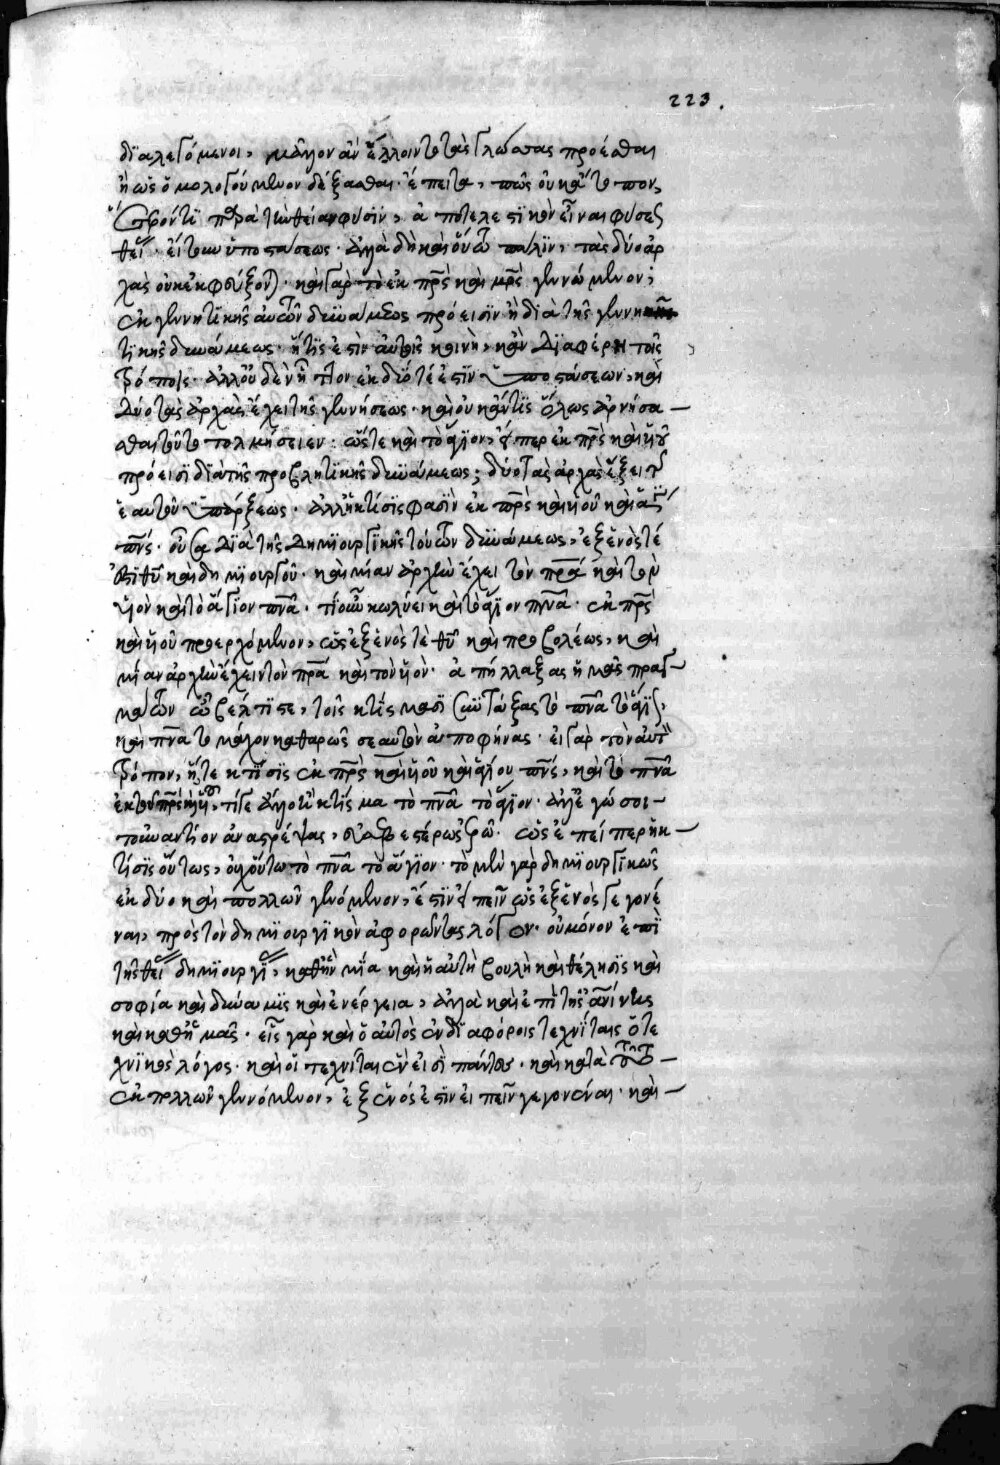 223.
διαλεγόμενοι, μᾶλλον ἂν ἕλοιντο τὰς γλώττας προέσθαι
ἢ ὡς ὁμολογούμενον δέξασθαι· ἔπειτα, πῶς οὐ κἂν τοῦτο
φρονεῖ παρὰ τὴν θείαν φύσιν, ἀποτελεστικὸν εἶναι φύσεως
θεί εἴτουν ὑποστάσεως· ἀλλὰ δὴ καὶ οὕτω πάλιν, τὰς δύο ἀρ
χὰς οὐκ ἐκφεύξον)· καὶ γὰρ τὸ ἐκ πρς καὶ μρς γεννώμενον,
ἐκ γεννητικῆς αὐτῶν δυνάμεως πρόεισιν ἢ διὰ τῆς γεννη
τικῆς δυνάμεως· ἥτις ἐστὶν αὐτοῖς κοινὴ, κἂν διαφέρῃ τοῖς
τρόποις· ἀλλ' οὐδὲν ἧττον ἐκ δύο τέ ἐστιν ὑποστάσεων, καὶ
δύο τὰς ἀρχὰς ἔχει τῆς γεννήσεως· καὶ οὐκ ἄν τις ὅλως ἀρνήσα
σθαι τοῦτο τολμήσειεν· ὥστε καὶ τὸ ἅγιον, εἴπερ ἐκ πρς καὶ υἱοῦ
πρόεισι διὰ τῆς προβλητικῆς δυνάμεως, δύο τὰς ἀρχὰς ἕξει τῆς
ἑαυτοῦ ὑπάρξεως· ἀλλ' ἡ κτίσις φασὶν ἐκ πρς καὶ υἱοῦ καὶ ἁγίου
πνς· οὖσα διὰ τῆς δημιουργικῆς τούτων δυνάμεως, ἐξ ἑνός τέ
ἐστι θυ καὶ δημιουργοῦ· καὶ μίαν ἀρχὴν ἔχει τὸν πρα καὶ τὸν
υἱὸν καὶ τὸ ἅγιον πνα· τί οὖν κωλύει καὶ τὸ ἅγιον πνα· ἐκ πρς
καὶ υἱοῦ προερχόμενον, ὡς ἐξ ἑνός τε θυ καὶ προβολέως, καὶ
μίαν ἀρχὴν ἔχειν τὸν πρα καὶ τὸν υἱὸν· ἀπήλλαξας ἡμᾶς πραγ
μάτων ὦ βέλτιστε, τοῖς κτίσμασι συντάξας τὸ πνα τὸ ἅγι),
καὶ πνατομάχον καθαρῶς σεαυτὸν ἀποφήνας· εἰ γὰρ τὸν αὐτὸν
τρόπον, ἥτε κτίσις ἐκ πρς καὶ υἱοῦ καὶ ἁγίου πνς, καὶ τὸ πνα
ἐκ τοῦ πρς καὶ υἱοῦ, τί γε ἄλλο ἢ κτίσμα τὸ πνα τὸ ἅγιον· ἀλλ' ἐγώ σοι
τοὐναντίον ἀναστρέψας, σαφεστέρως ἐρῶ· ὡς ἐπείπερ ἡ κ
τίσις οὕτως, οὐχ οὕτω τὸ πνα τὸ ἅγιον· τὸ μὲν γὰρ δημιουργικῶς
ἐκ δύο καὶ πολλῶν γινόμενον, ἔστιν εἰπεῖν ὡς ἐξ ἑνὸς γεγονέ
ναι, πρὸς τὸν δημιουργικὸν ἀφορῶντας λόγον· οὐ μόνον ἐπὶ
τῆς θεί δημιουργί, καθ' ἣν μία καὶ ἡ αὐτὴ βουλὴ καὶ θέλησις καὶ
σοφία καὶ δύναμις καὶ ἐνέργεια, ἀλλὰ καὶ ἐπὶ τῆς
καὶ καθ' ἡμᾶς· εἷς γὰρ καὶ ὁ αὐτὸς ἐν διαφόροις τεχνίταις ὁ τε
χνικὸς λόγος· καὶ οἱ τεχνῖται ἕν εἰσὶ πάντες· καὶ κατὰ τοῦτο
ἐκ πολλῶν γεννόμενον, ἐξ ἑνός ἐστιν εἰπεῖν γεγονέναι· καὶ